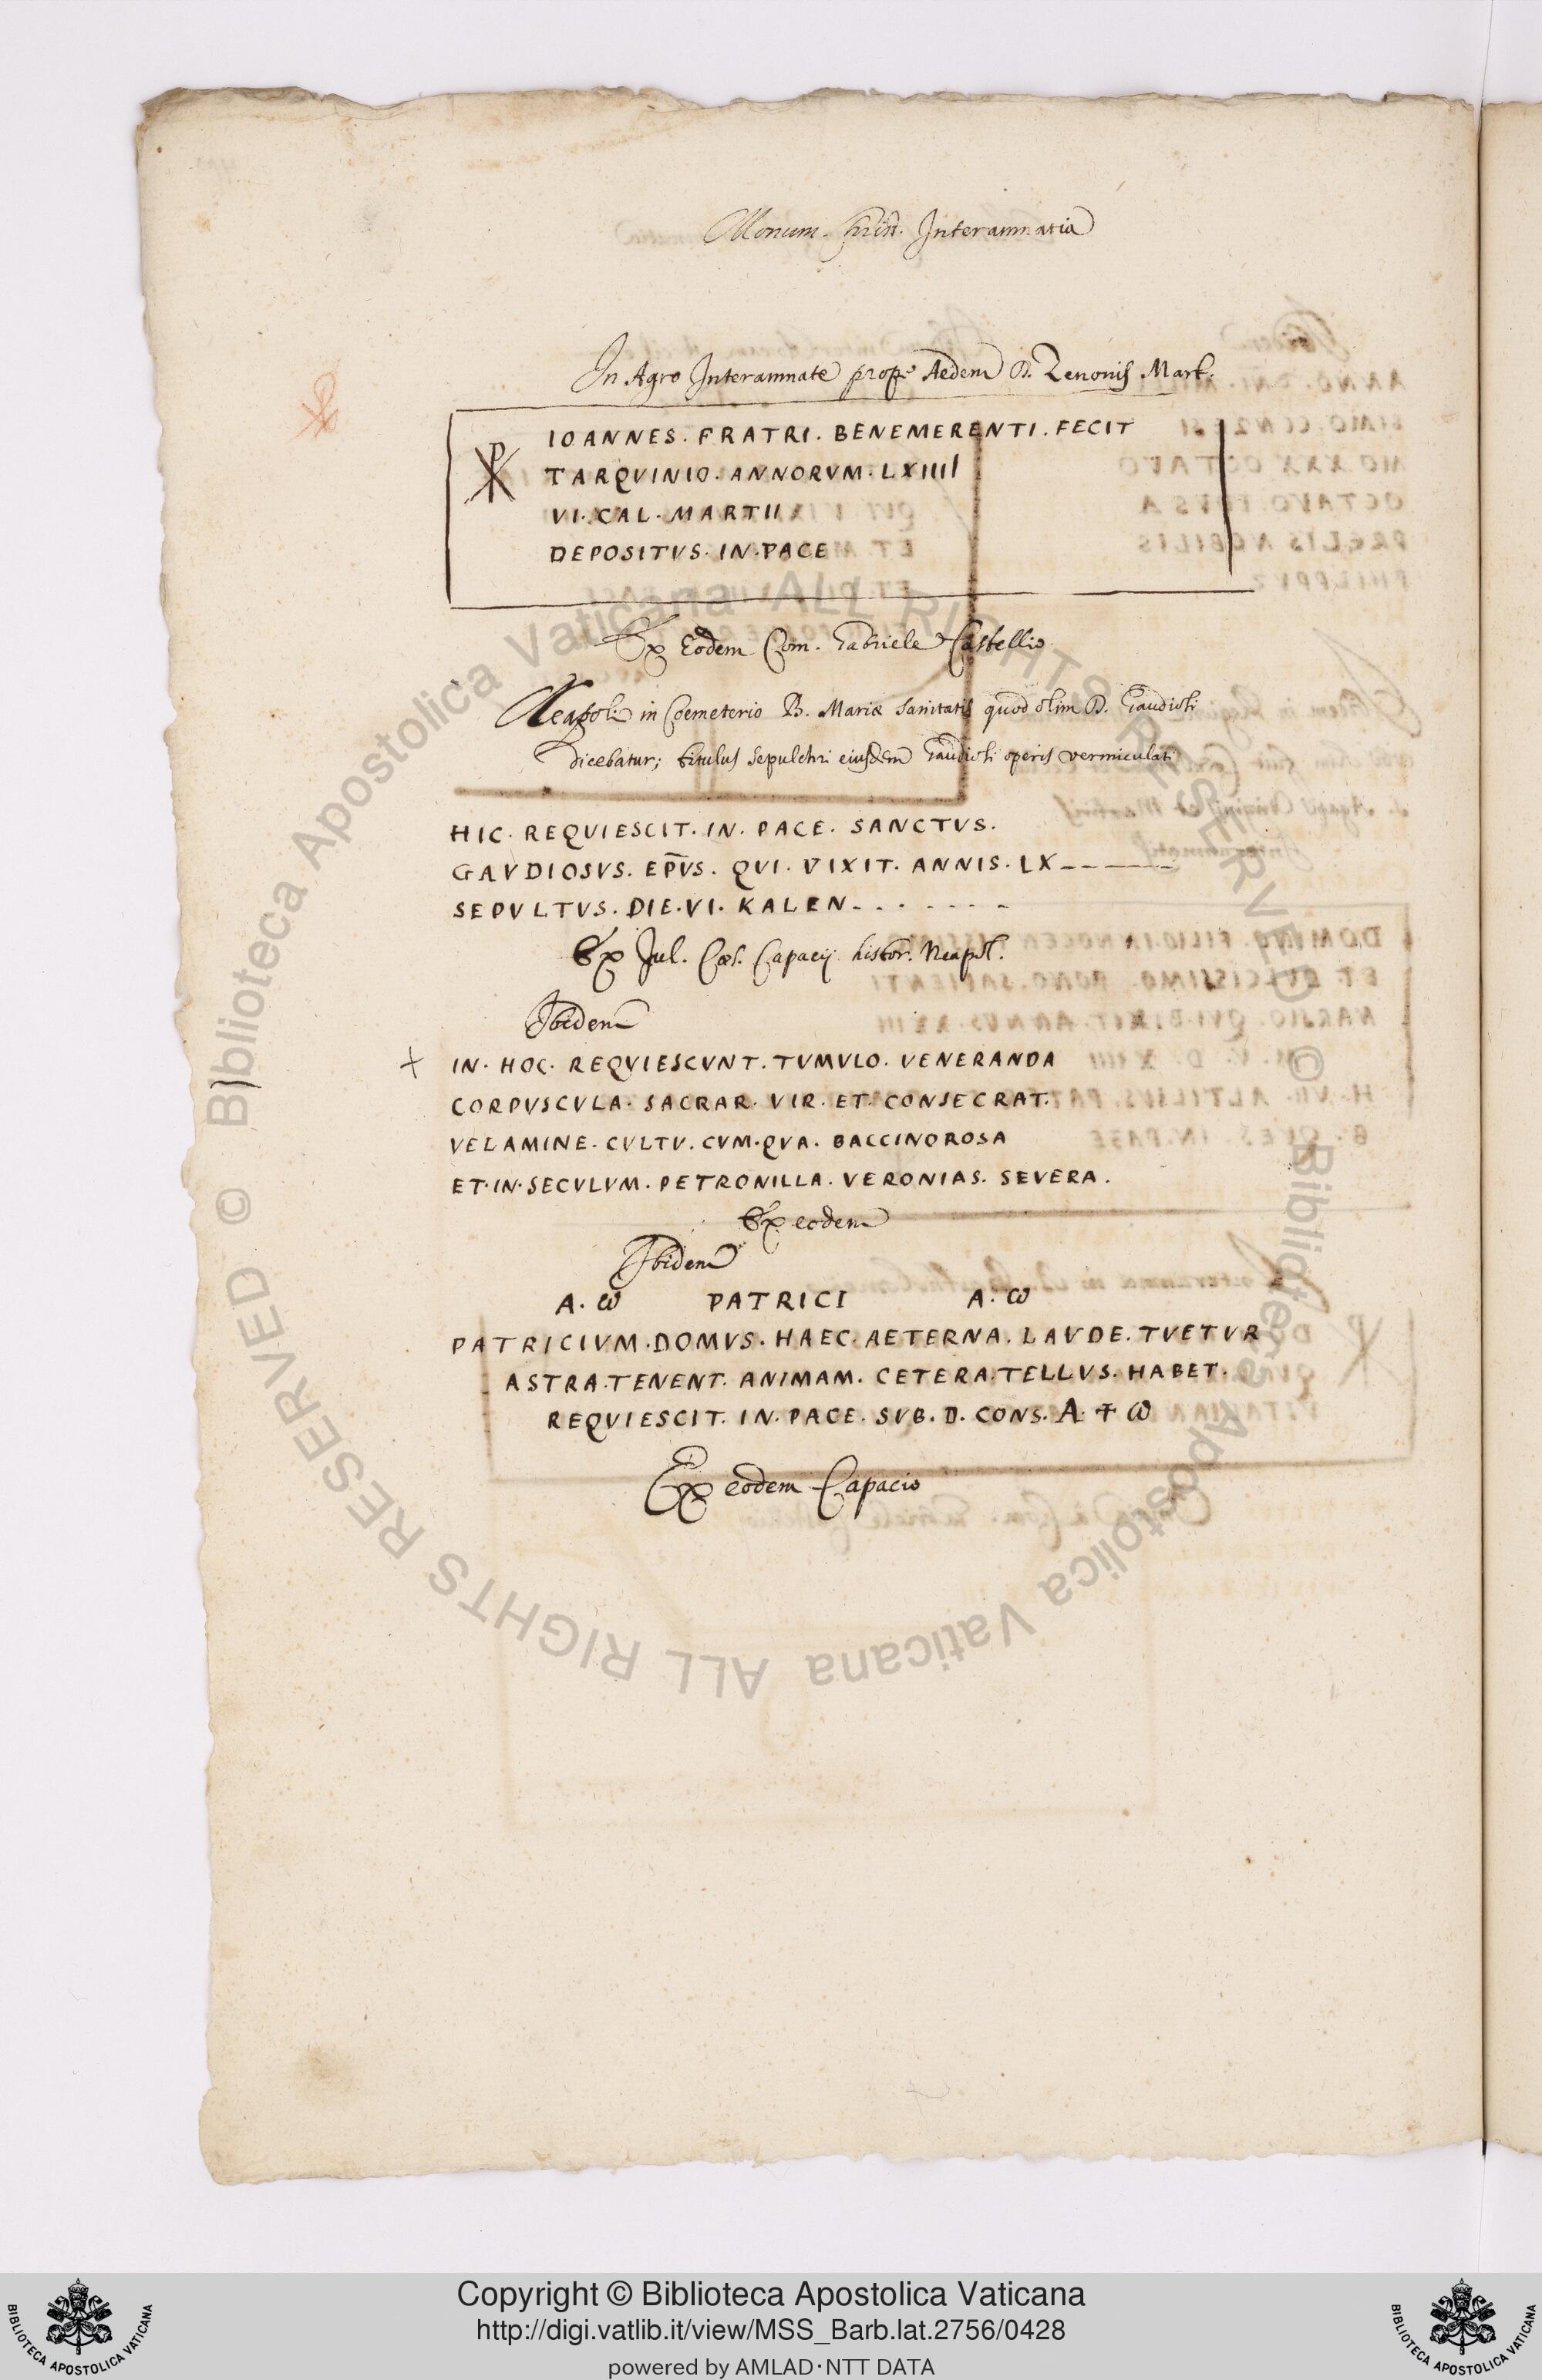 Monum. Christ. Interamnatia
In Agro Interamnate prope Aedem D. Zenonis Mart.
☧ IOANNES. FRATRI. BENEMERENTI. FECIT
TARQVINIO. ANNORVM. LXIIII
VI. CAL. MARTII
DEPOSITVS. IN. PACE
Ex Eodem Com. Gabriele Castellio
Neapoli in Coemeterio B. Mariæ Sanitatis quod olim D. Gaudiosi
dicebatur; titulus sepulchri eiusdem Gaudiosi operis vermiculati
HIC. REQVIESCIT. IN. PACE. SANCTVS.
GAVDIOSVS. EP̅VS. QVI. VIXIT. ANNIS. LX------
SEPVLTVS. DIE. VI. KALEN-------
Ex Jul. Cæs. Capacij histor. Neapol.
Ibidem
+ IN. HOC. REQVIESCVNT. TVMVLO. VENERANDA
CORPVSCVLA. SACRAR. VIR. ET. CONSECRAT.
VELAMINE. CVLTV. CVM. QVA. BACCINOROSA
ET. IN. SECVLVM. PETRONILLA. VERONIAS. SEVERA.
Ex eodem
Ibidem
A. ω PATRICI A. ω
PATRICIVM. DOMVS. HAEC. AETERNA. LAVDE. TVETVR
ASTRA. TENENT. ANIMAM. CETERA. TELLVS. HABET.
REQVIESCIT. IN. PACE. SVB. D. CONS. A. + ω
Ex eodem Capacio
© Biblioteca Apostolica Vaticana ALL RIGHTS RESERVED
© Biblioteca Apostolica Vaticana ALL RIGHTS RESERVED
BIBLIOTECA APOSTOLICA VATICANA
Copyright © Biblioteca Apostolica Vaticana
http://digi.vatlib.it/view/MSS_Barb.lat.2756/0428
powered by AMLAD·NTT DATA
BIBLIOTECA APOSTOLICA VATICANA